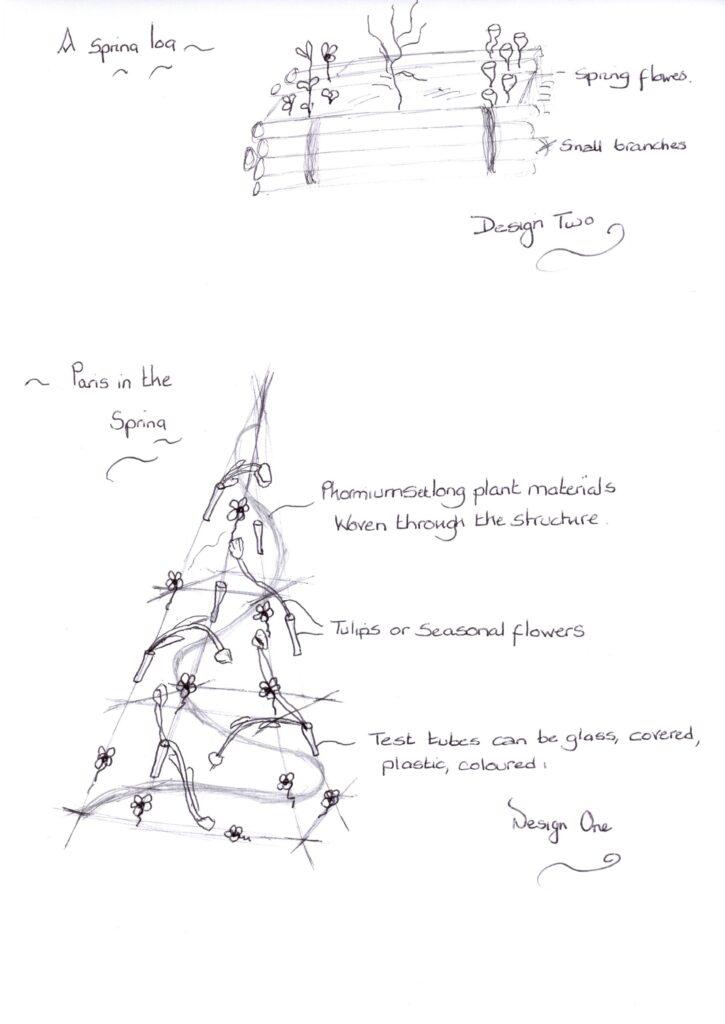 A Spring log
Spring flowes.
Small branches
Design Two
Paris in the
Spring
Phormiums long plant materials
Woven through the structure.
Tulips or seasonal flowers
Test tubes can be glass, covered,
plastic, coloured.
Design One